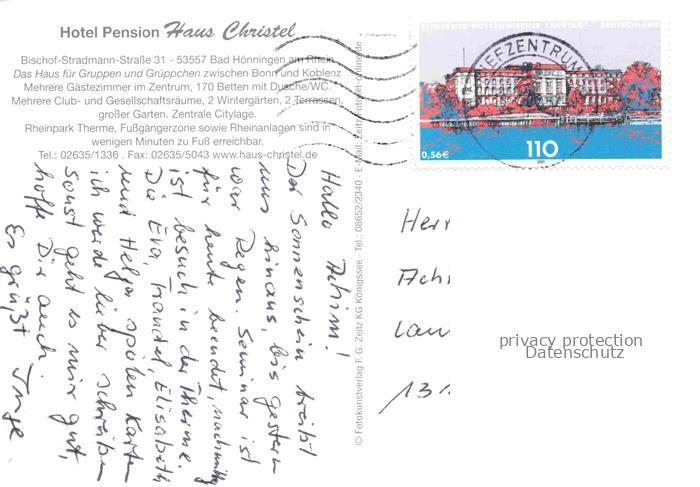 Hotel Pension Haus Christel
Bischof-Stradmann-Straße 31 - 53557 Bad Hönningen am Rhein
Das Haus für Gruppen und Grüppchen zwischen Bonn und Koblenz
Mehrere Gästezimmer im Zentrum, 170 Betten mit Dusche/WC.
Mehrere Club- und Gesellschaftsräume, 2 Wintergärten, 2 Terrassen,
großer Garten. Zentrale Citylage.
Rheinpark Therme, Fußgängerzone sowie Rheinanlagen sind in
wenigen Minuten zu Fuß erreichbar.
Tel.: 02635/1336 . Fax: 02635/5043 www.haus-christel.de
Hallo Achim!
Der Sonnenschein treibt
uns hinaus, bis gestern
war Regen. Seminar ist
für heute beendet, nachmittag
ist besuch in der Therme.
Die Eva, Traudel, Elisabeth
und Helga spielen Karten
ich werde lieber schreiben
Sonst geht es mir gut,
hoffe Dir auch.
Es grüßt Inge
© Fotokunstverlag F. G. Zeitz KG Königssee · Tel.: 08652/2340 · E-Mail:
DEUTSCHLAND
BRIEFZENTRUM
0,56€
110
2001
Herr
Achi
Lau
131
privacy protection
Datenschutz